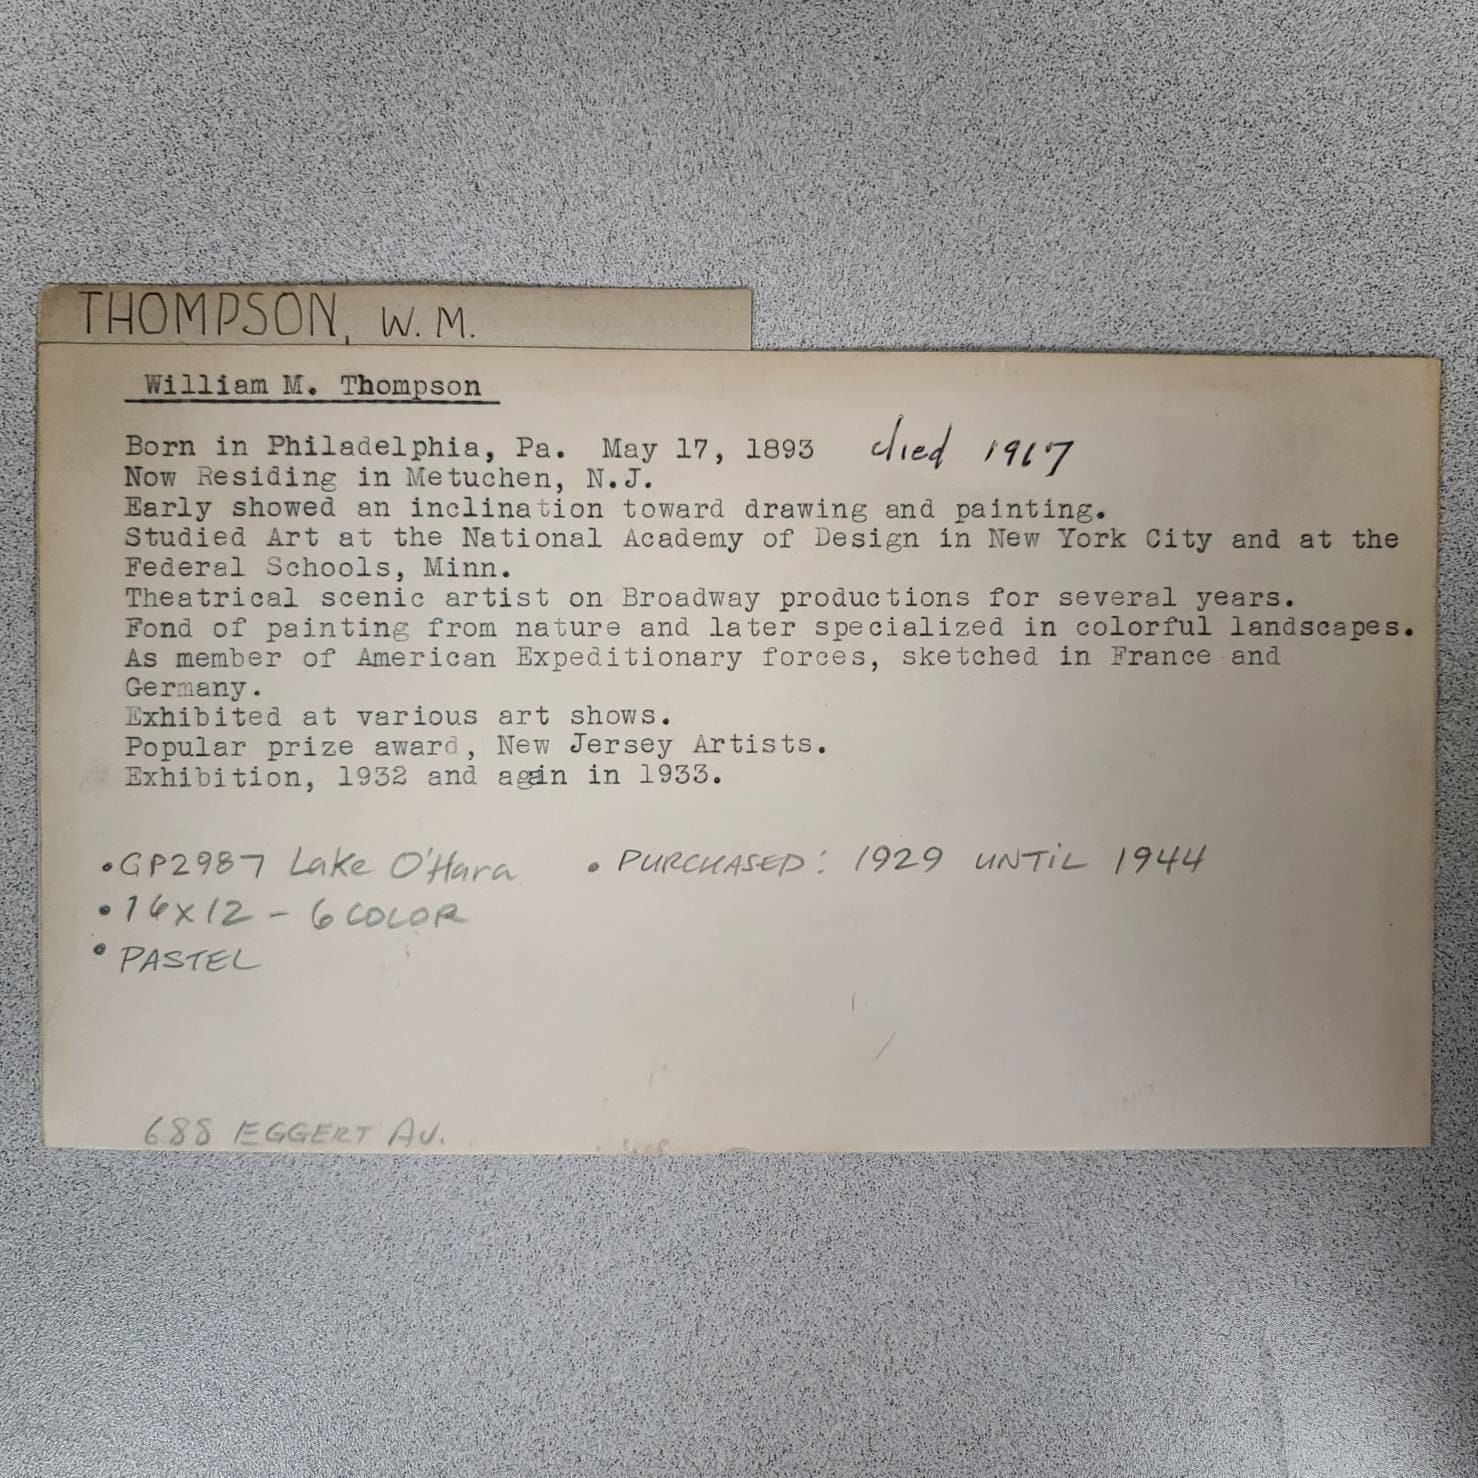 THOMPSON, W. M.
William M. Thompson
Born in Philadelphia, Pa. May 17, 1893 died 1967
Now Residing in Metuchen, N.J.
Early showed an inclination toward drawing and painting.
Studied Art at the National Academy of Design in New York City and at the
Federal Schools, Minn.
Theatrical scenic artist on Broadway productions for several years.
Fond of painting from nature and later specialized in colorful landscapes.
As member of American Expeditionary forces, sketched in France and
Germany.
Exhibited at various art shows.
Popular prize award, New Jersey Artists.
Exhibition, 1932 and again in 1933.
• GP2987 Lake O'Hara • PURCHASED: 1929 UNTIL 1944
• 16x12 - 6 COLOR
• PASTEL
688 EGGERT AV.